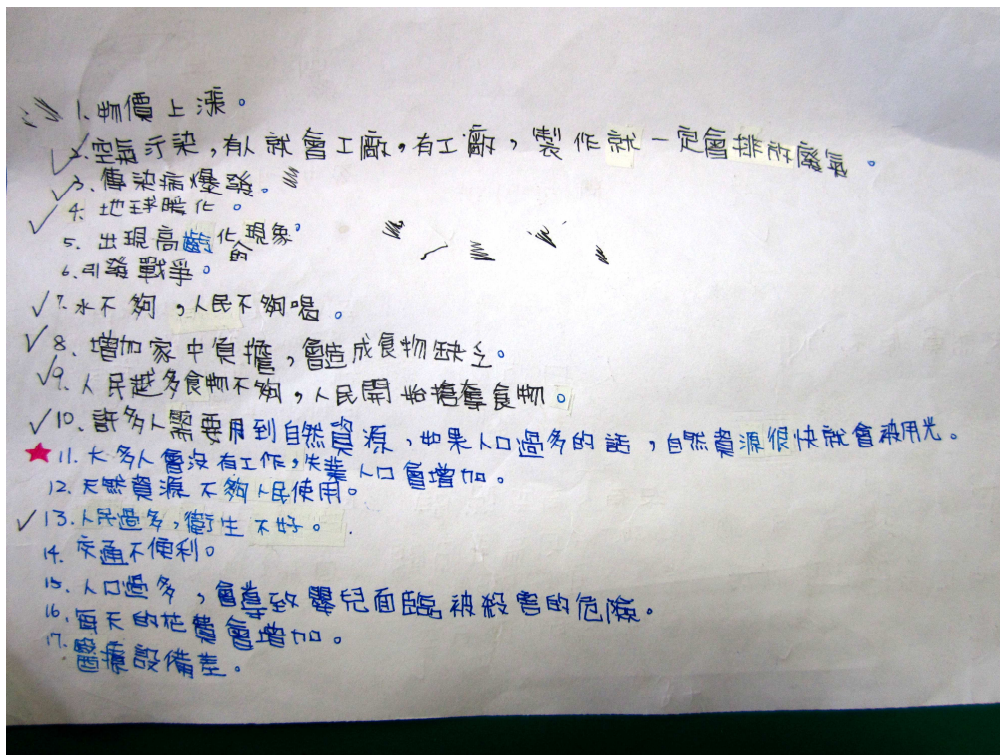 1.物價上漲。
2.空氣汙染,有人就會工廠,有工廠,製作就一定會排放廢氣。
3.傳染病爆發。
4.地球暖化。
5.出現高齡化的現象。
6.引發戰爭。
7.水不夠,人民不夠喝。
8.增加家中負擔,會造成食物缺乏。
9.人民越多食物不夠,人民開始搶奪食物。
10.許多人需要用到自然資源,如果人口過多的話,自然資源很快就會被用光。
11.大多人會沒有工作,失業人口會增加。
12.天然資源不夠人民使用。
13.人民過多,衛生不好。
14.交通不便利。
15.人口過多,會導致嬰兒面臨被殺害的危險。
16.每天的花費會增加。
17.醫療設備差。